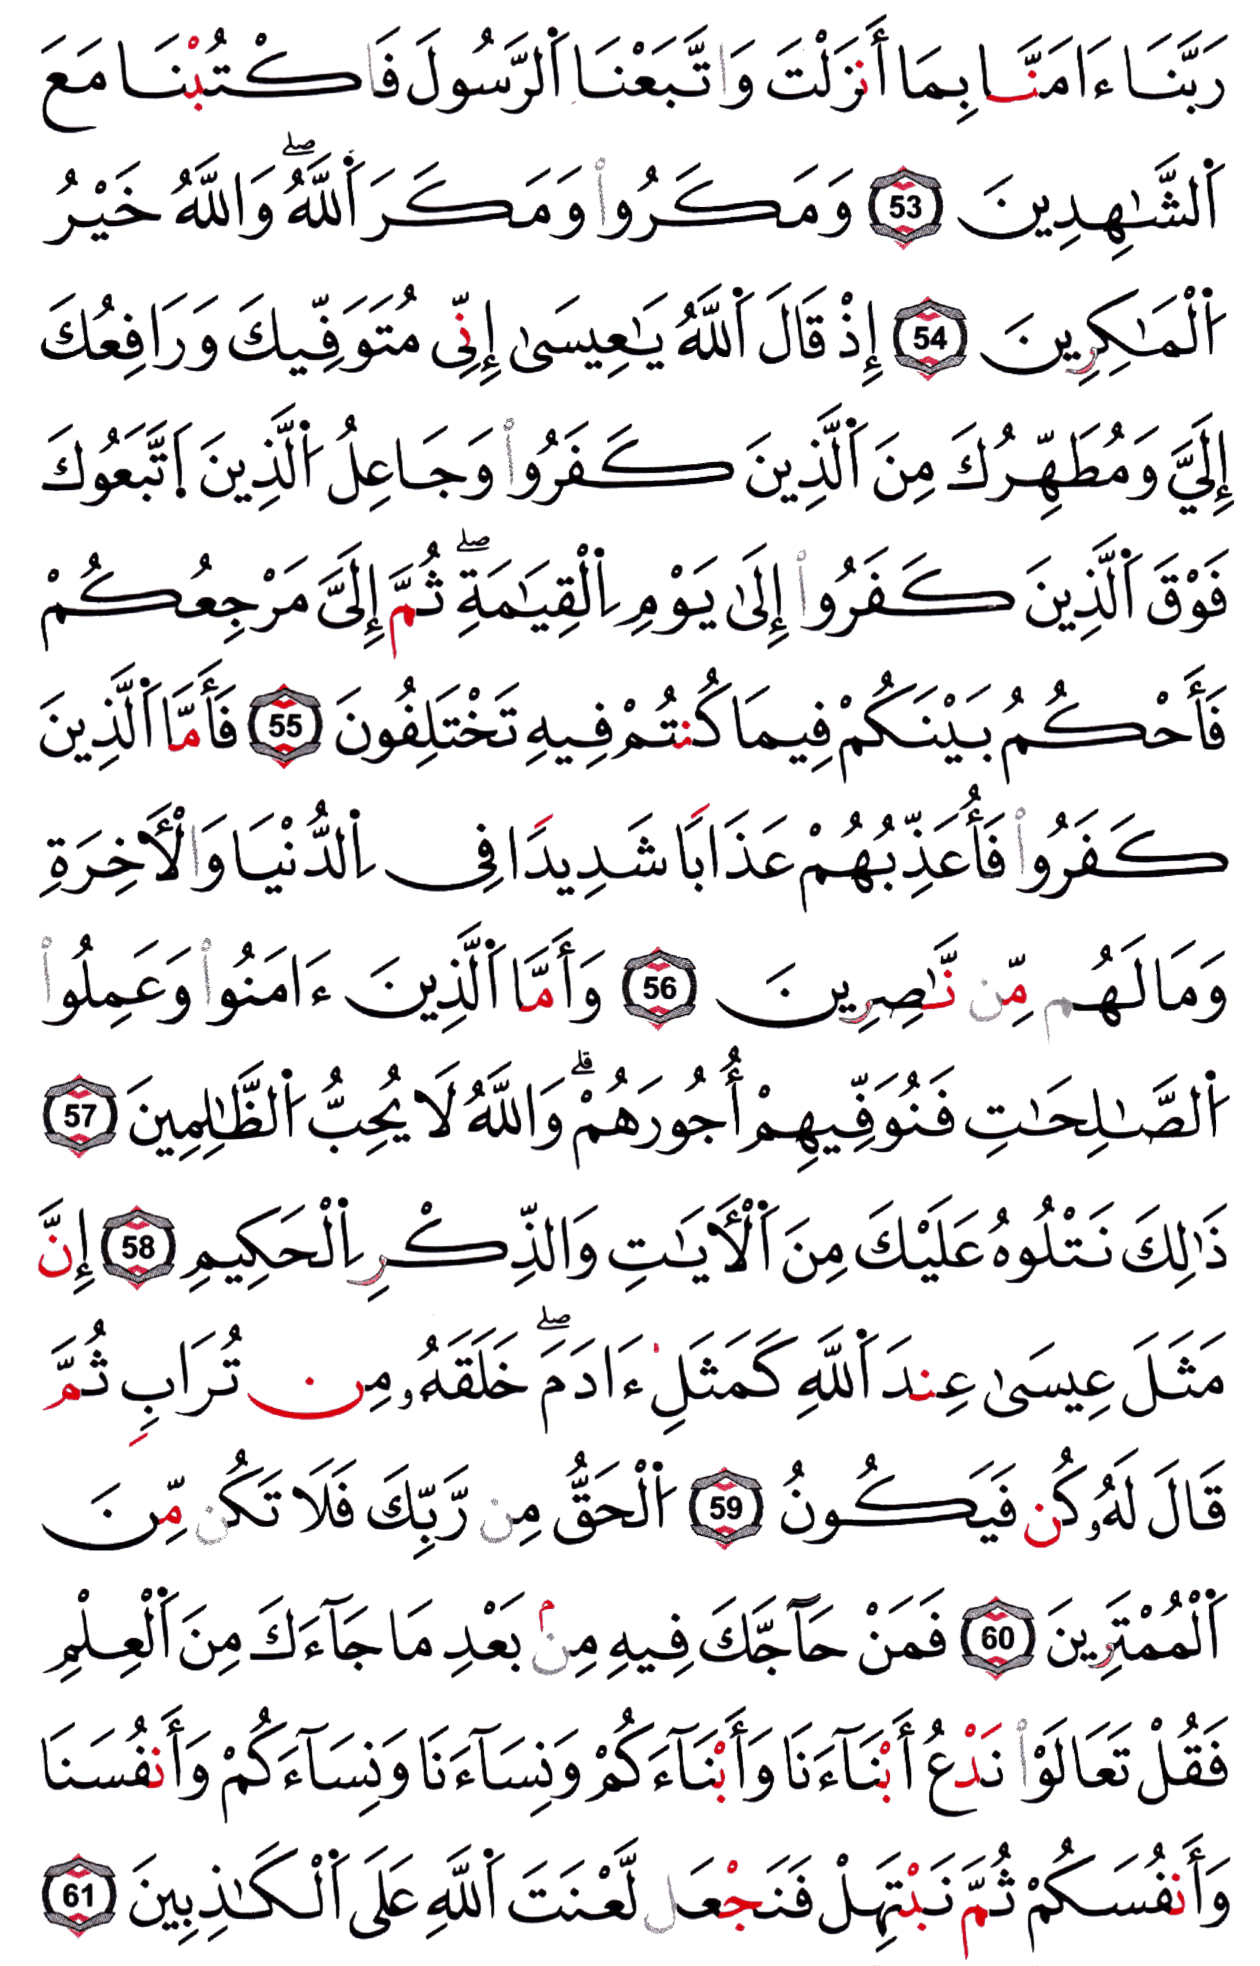 رَبَّنَا ءَامَنَّا بِمَا أَنزَلْتَ وَاتَّبَعْنَا اَلرَّسُولَ فَاكْتُبْنَا مَعَ
اَلشَّٰهِدِينَ 53 وَمَكَرُواْ وَمَكَرَ اَللَّهُۖ وَاللَّهُ خَيْرُ
اُلْمَٰكِرِينَ 54 إِذْ قَالَ اَللَّهُ يَٰعِيسَىٰ إِنِّي مُتَوَفِّيكَ وَرَافِعُكَ
إِلَيَّ وَمُطَهِّرُكَ مِنَ اَلَّذِينَ كَفَرُواْ وَجَاعِلُ اُلَّذِينَ اَتَّبَعُوكَ
فَوْقَ اَلَّذِينَ كَفَرُواْ إِلَىٰ يَوْمِ اِلْقِيَٰمَةِۖ ثُمَّ إِلَىَّ مَرْجِعُكُمْ
فَأَحْكُمُ بَيْنَكُمْ فِيمَا كُنتُمْ فِيهِ تَخْتَلِفُونَ 55 فَأَمَّا اَلَّذِينَ
كَفَرُواْ فَأُعَذِّبُهُمْ عَذَابًا شَدِيدًا فِي اِلدُّنْيَا وَالْأَخِرَةِ
وَمَا لَهُم مِّن نَّٰصِرِينَ 56 وَأَمَّا اَلَّذِينَ ءَامَنُواْ وَعَمِلُواْ
اُلصَّٰلِحَٰتِ فَنُوَفِّيهِمْ أُجُورَهُمْۗ وَاللَّهُ لَا يُحِبُّ اُلظَّٰلِمِينَ 57
ذَٰلِكَ نَتْلُوهُ عَلَيْكَ مِنَ اَلْأَيَٰتِ وَالذِّكْرِ اِلْحَكِيمِ 58 إِنَّ
مَثَلَ عِيسَىٰ عِندَ اَللَّهِ كَمَثَلِ ءَادَمَۖ خَلَقَهُۥ مِن تُرَابٍ ثُمَّ
قَالَ لَهُۥ كُن فَيَكُونُ 59 اُلْحَقُّ مِن رَّبِّكَ فَلَا تَكُن مِّنَ
اَلْمُمْتَرِينَ 60 فَمَنْ حَآجَّكَ فِيهِ مِنۢ بَعْدِ مَا جَآءَكَ مِنَ اَلْعِلْمِ
فَقُلْ تَعَالَوْاْ نَدْعُ أَبْنَآءَنَا وَأَبْنَآءَكُمْ وَنِسَآءَنَا وَنِسَآءَكُمْ وَأَنفُسَنَا
وَأَنفُسَكُمْ ثُمَّ نَبْتَهِلْ فَنَجْعَل لَّعْنَتَ اَللَّهِ عَلَى اَلْكَٰذِبِينَ 61